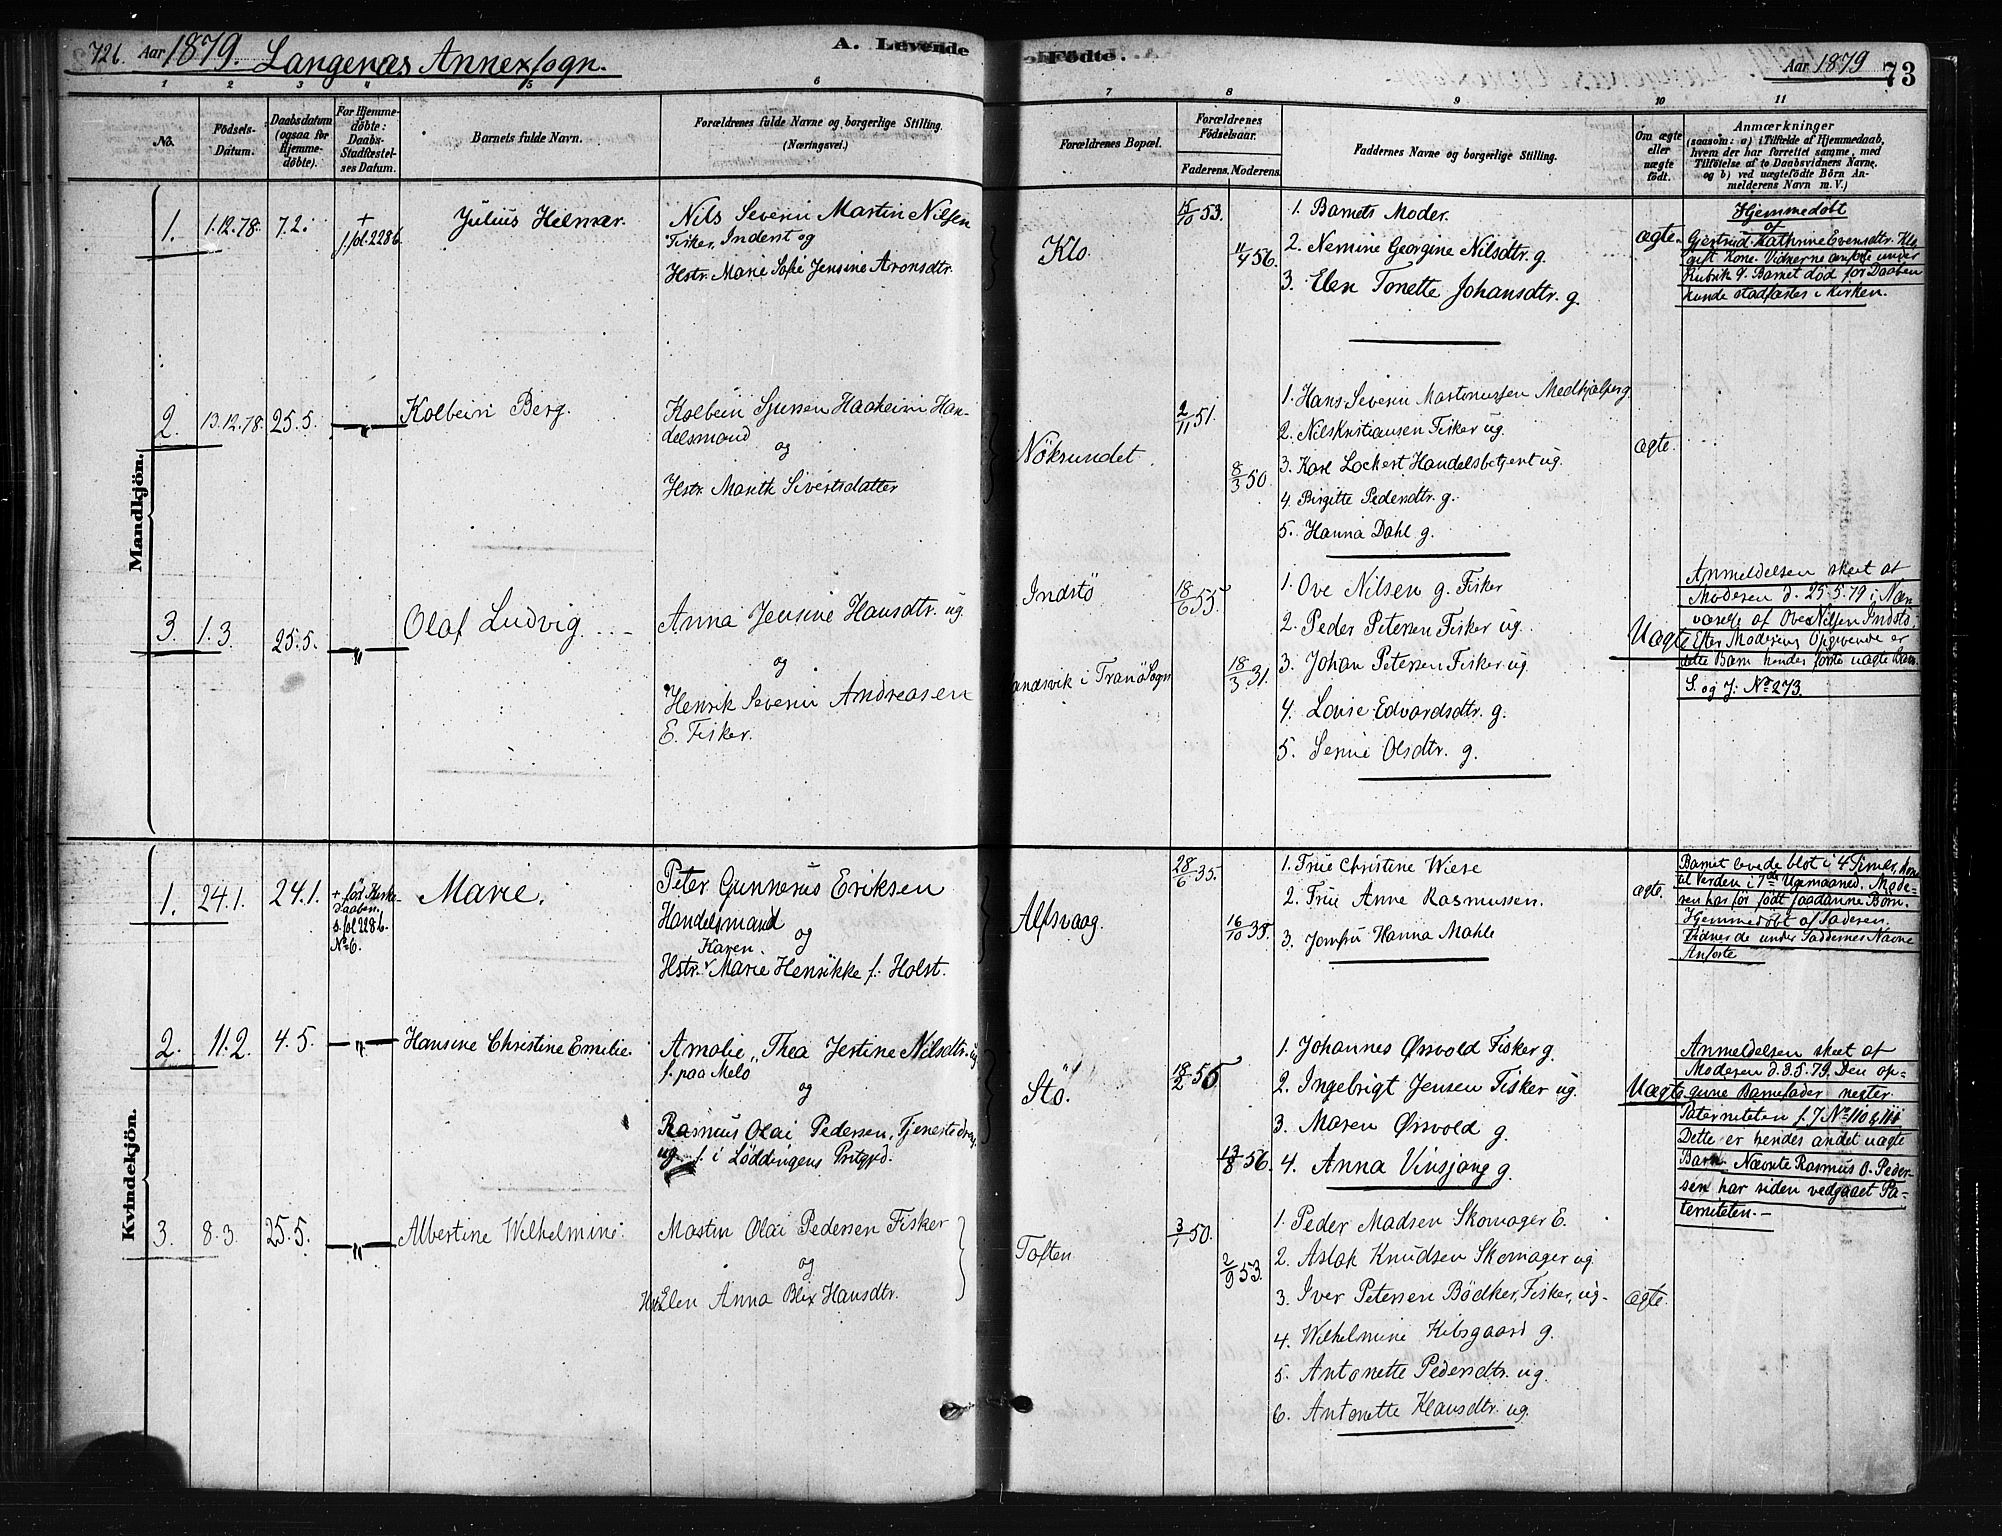 72b. Aar 1879. Langenæs Annexsogn. A. Levende
Fødte. Aar 1879 73
1 2 3 4 5 6 7 8 9 10 11
No.
Fødsels-
Datum.
Daabsdatum
(ogsaa for
Hjemme-
døbte).
For Hjemme-
døbte:
Daabs-
Stadfæstel-
ses Datum.
Barnets fulde Navn.
Forældrenes fulde Navne og borgerlige Stilling.
(Næringsvei.)
Forældrenes Bopæl.
Forældrenes
Fødselsaar.
Faderens. Moderens.
Faddernes Navne og borgerlige Stilling.
Om ægte
eller
uægte
født.
Anmærkninger
(saasom: a) i Tilfælde af Hjemmedaab,
hvem der har forrettet samme, med
Tilføielse af to Daabsvidners Navne,
og b) ved uægtefødte Børn An-
melderens Navn m. V.)
Mandkjön.
1. 1.12.78. 7.2. +
f. fol. 228 6.
Julius Helmer.
Nils Severin Martin Nilsen
Fisker, Inderst og
Hstr. Marie Sofie Jensine Aronsdtr.
Klo.
15/10 53.
11/4 56.
1. Barnets Moder.
2. Nemine Georgine Nilsdtr. g.
3. Elen Tonette Johansdtr. g.
ægte.
Hjemmedøbt
af
Gjertrud Kathrine Evensdtr. Klo
gift Kone. Vidnerne anførte under
Rubrik 9. Barnet død før Daaben
kunde stadfæstes i Kirken.
2. 13.12.78. 25.5. — „ —
Kolbein Berg.
Kolbein Sjursen Haaheim Han-
delsmand
og
Hstr. Marith Sivertsdatter
Nöksundet.
2/11 51.
8/3 50.
1. Hans Severin Martinussen Medhjælper g.
2. Nils Kristiansen Fisker ug.
3. Karl Lockert Handelsbetjent ug.
4. Birgitte Pedersdtr. g.
5. Hanna Dahl g.
ægte.
3. 1.3. 25.5. — „ —
Olaf Ludvig.
Anna Jensine Hansdtr. ug.
og
Henrik Severin Andreasen
E. Fisker.
Indstö
andsvik i Tranö Sogn
18/6 55.
18/3 31.
1. Ove Nilsen g. Fisker
2. Peder Petersen Fisker ug.
3. Johan Petersen Fisker ug.
4. Lovise Edvardsdtr. g.
5. Serine Olsdtr. g.
Uægte
Anmeldelsen skeet af
Moderen d. 25.5.79 i Nær
værelse af Ove Nilsen Indstö.
Efter Moderens Opgivende er
dette Barn hendes første uægte Barn.
S. og J. No 273.
Kvindekjön.
1. 24.1. 24.1. + før Kirke-
daaben.
s. fol 228 6.
No 6.
Marie.
Peter Gunnerus Eriksen
Handelsmand
og
Karen
Hstr. Marie Henrikke f. Holst.
Alfsvaag.
28/6 35.
16/10 38.
1. Frue Christine Wiese
2. Frue Anne Rasmussen.
3. Jomfru Hanna Mahle
ægte.
Barnet levede blot i 4 Timer, kom
til Verden i 7de Ugemaaned. Mode-
ren har før født saadanne Børn.
Hjemmedøbt af Faderen.
Vidner de under Faddernes Navne
Anførte
2. 11.2. 4.5. — „ —
Hansine Christine Emilie.
Amalie Thea Jertine Nilsdtr. ug
f. paa Melö
og
Rasmus Olai Pedersen, Tjenestedreng
ug. f. i Löddingens Prstgjd.
Stö.
18/2 55
13/8 56.
1. Johannes Ørsvold Fisker g.
2. Ingebrigt Jensen Fisker ug.
3. Maren Ørsvold g.
4. Anna Vinsjang g.
Uægte
Anmeldelsen skeet af
Moderen d. 3.5.79. Den op-
givne Barnefader negter
Paterniteten f. 7 No 110 & 111
Dette er hendes andet uægte
Barn. Nævnte Rasmus O. Peder-
sen har siden vedgaaet Pa-
terniteten.-
3. 8.3. 25.5. — „ —
Albertine Wilhelmine.
Martin Olai Pedersen Fisker
og
Hstr. Elen Anna Blix Hansdtr.
Toften.
3/1 50.
2/9 53.
1. Peder Madsen Skomager E.
2. Aslak Knudsen Skomager ug.
3. Iver Petersen Bödker, Fisker, ug.
4. Wilhelmine Kibsgaard g.
5. Antonette Pedersdtr. ug.
6. Antonette Klausdtr. ug.
ægte.